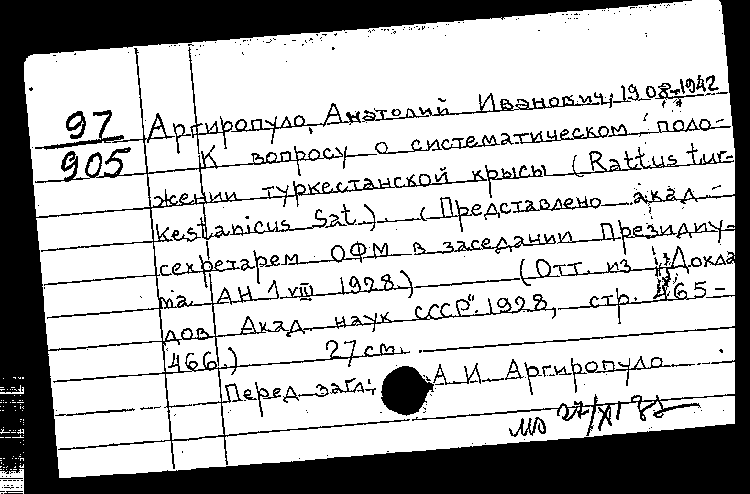 97
905
Аргиропуло, Анатолий Иванович, 1908-1942
К вопросу о систематическом поло-
жении туркестанской крысы (Rattus tur-
kestanicus Sat.). (Представлено акад.-
секретарем ОФМ в заседании Президиу-
ма АН 1 VIII 1928.) (Отт. из „Докла
дов Акад. наук СССР". 1928, стр. 465-
466.) 27 см.
Перед загл.: А. И. Аргиропуло.
27/XI